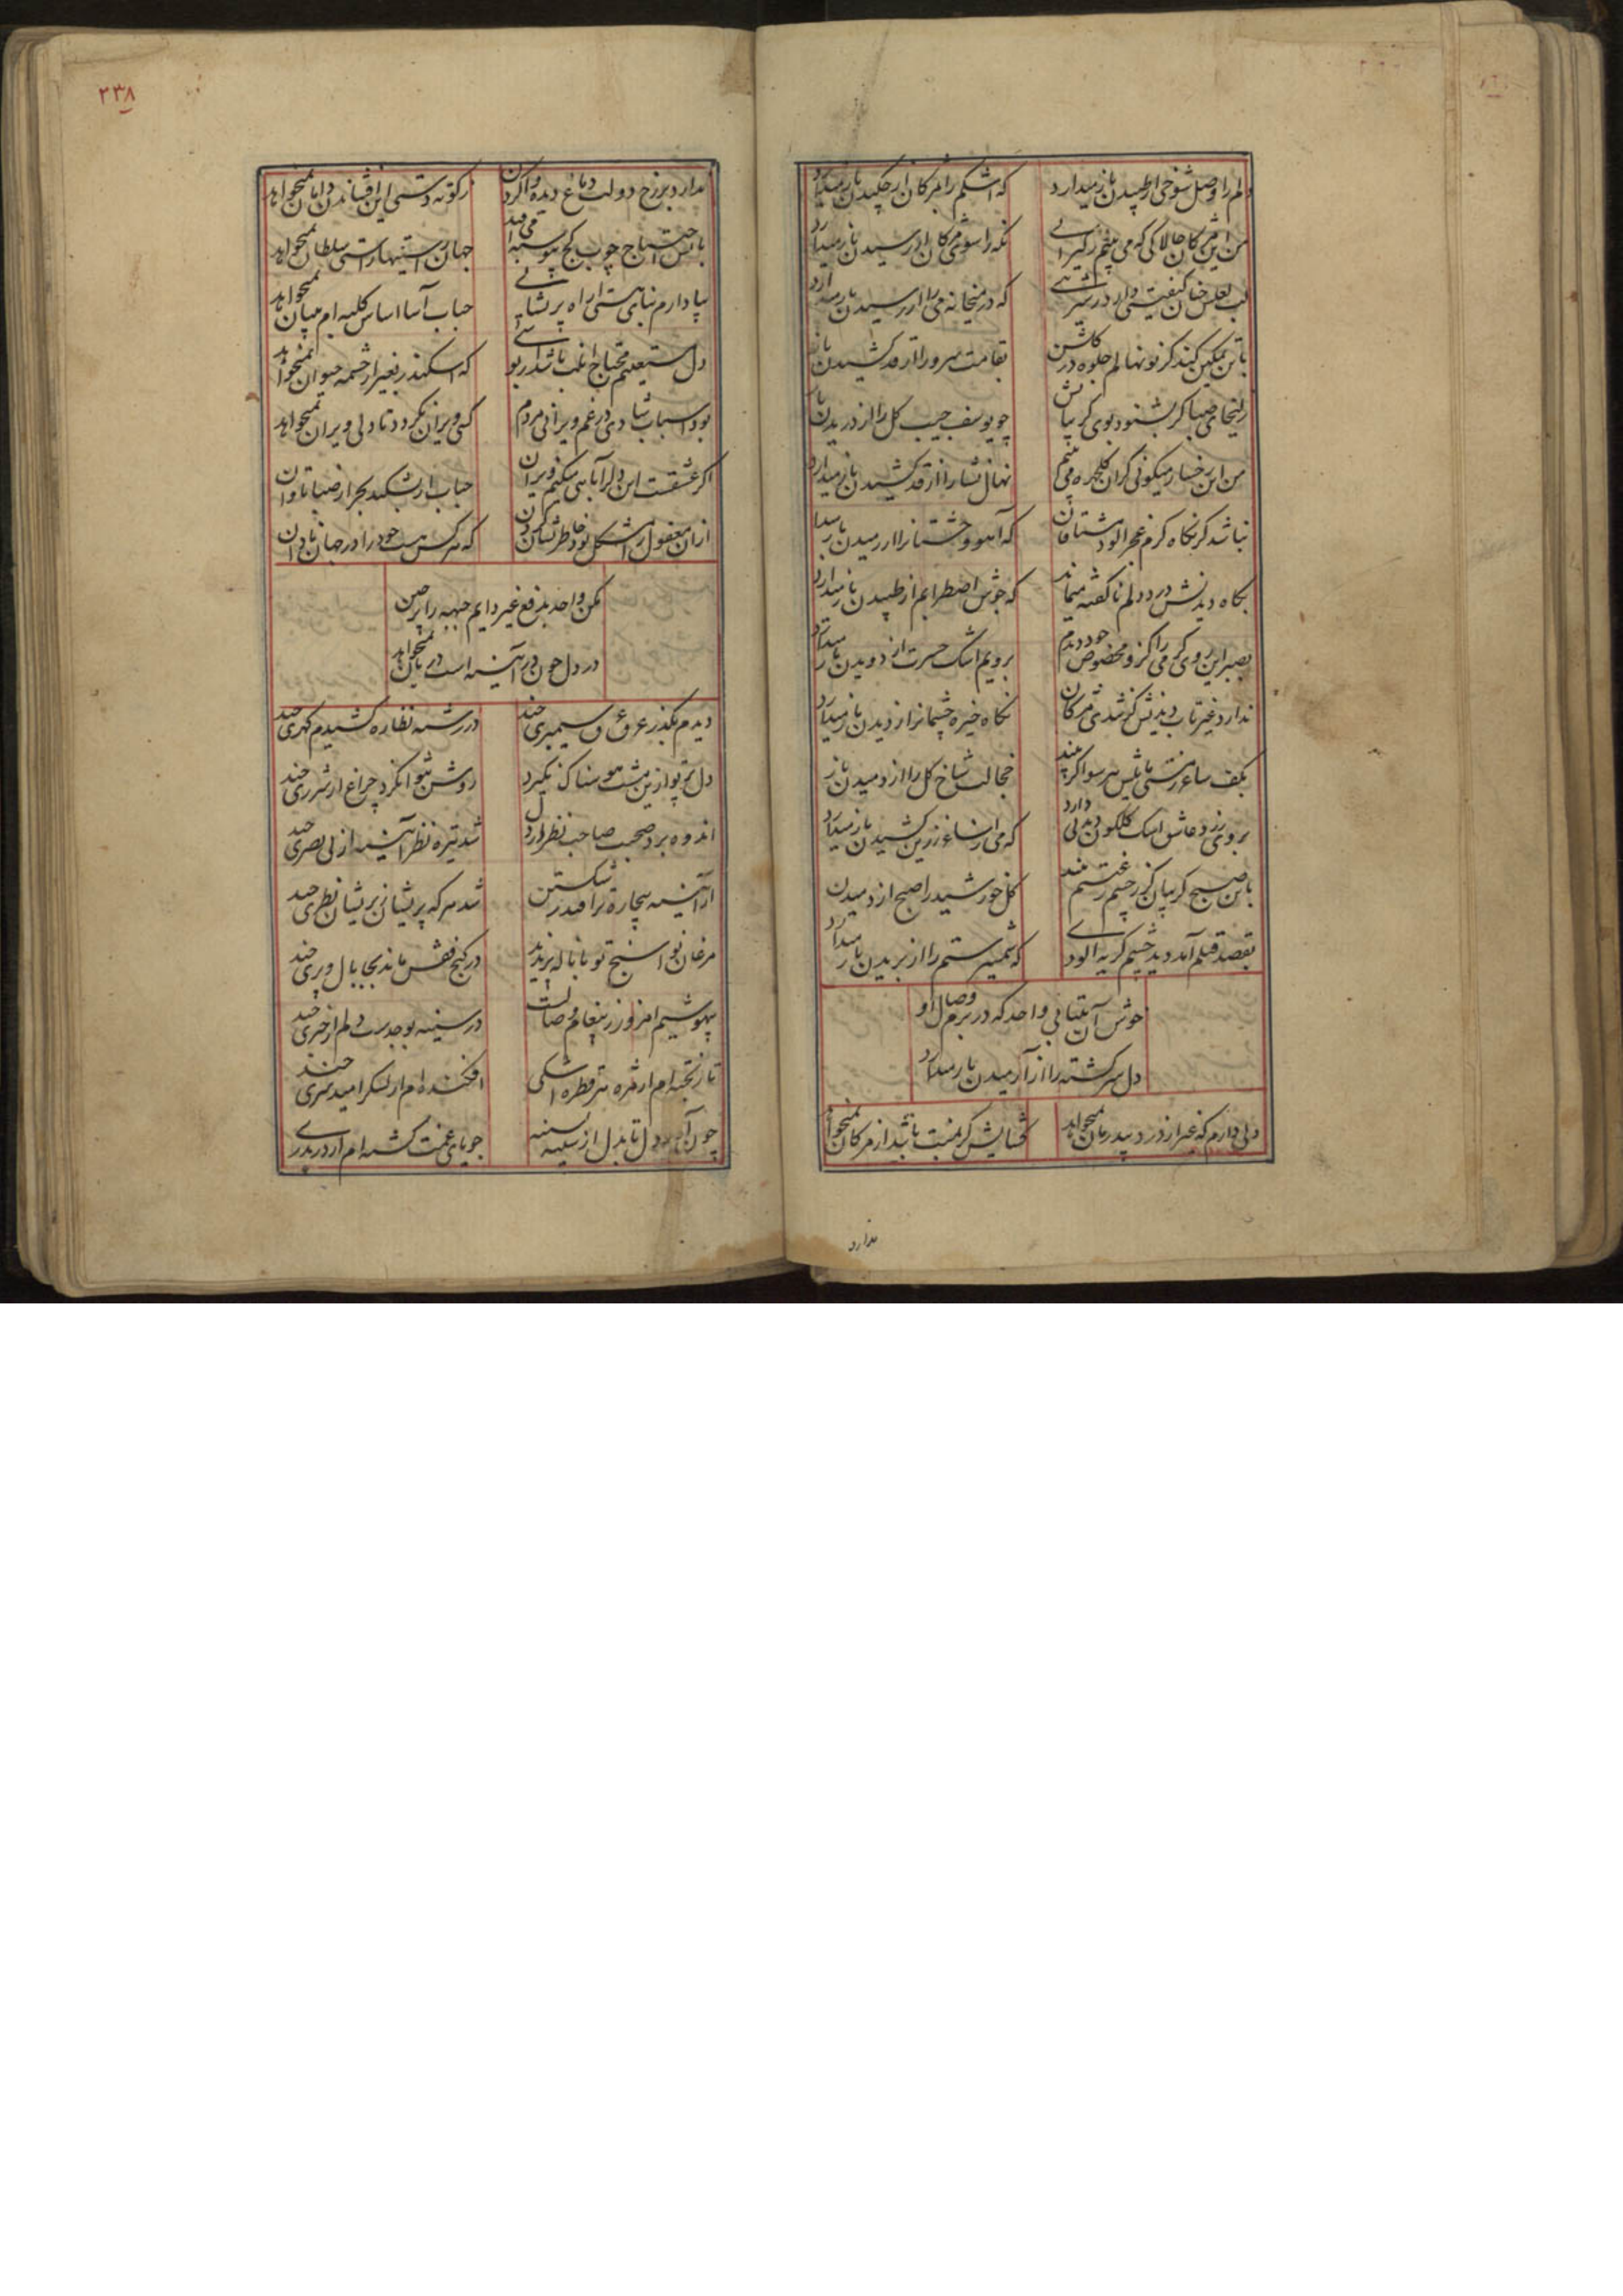 دلم را وصل شوخی از طپیدن باز میدارد
که اشکم را ز مژکان از چکیدن باز میدارد
من این مژکان
که می بینم ز کیرائی
نکه را سوی مژکان از رسیدن باز میدارد
لب لعلش
کیفیتی دارد
که در میخانه می را از رسیدن باز میدارد
باین تمکین کند کر نونهالم جلوه در کلشن
بقامت سرو را از قد کشیدن باز
زلیخای صبا کر بشنود بوی کریبانش
چو یوسف جیب کل را از دریدن باز
من این رخسار میکونی کزان کلچهره می بینم
را از قد کشیدن باز میدارد
نباشد کر نکاه کرم عجز الود مشتاقان
که آهو وحشتانرا از رمیدن باز میدارد
نکاه دیدنش درد دلم ناکفته میماند
که جوش اضطرابم از طپیدن باز میدارد
بصبر این روی کرمی را کزو مخصوص خود دیدم
برویم اشک حسرت از دویدن باز میدارد
ندارد غیر تاب دیدنش کر شد ز مژکان
نکاه خیره چشمانرا ز دیدن باز میدارد
بکف ساغر
سر سو اکر بیند
خجالت شاخ کل را از دمیدن باز
بروی زرد عاشق اشک کلکون دیدنی دارد
که می را ساغر زرین کشیدن باز میدارد
باین صبح کریبان کر
کل خورشید را صبح از دمیدن
بقصد قتلم آمد دید چشم کریه الودی
که شمشیر ستم را از بریدن باز میدارد
خوش آن بیتابی واحد که در بزم وصال او
دل سرکشته را از آرمیدن باز میدارد
دلی دارم که غیر از درد بیدرمان نمیخواهد
کشایش کر بمنت باشد از مژکان نمیخواهد
ندارد
۲۳۸
ندارد برزخ دولت دماغ دیده وا کردن
ز کوته دستی این افشاندن دامان نمیخواهد
باین احتیاج چوب کج
جهان راستیها راستی سلطان نمیخواهد
بپا دارم بنای هستی از راه پریشانی
حباب آسا اساس کلبه ام سامان نمیخواهد
دل مستغنیم محتاج
که اسکندر بغیر از چشمه حیوان نمیخواهد
بود اسباب شادی در غم ویرانی مردم
کسی ویران نکردد تا دلی ویران نمیخواهد
اکر عشقست این دلرا
میکنم ویران
حباب ار بشکند بحر از صبا تاوان
از ان معقول را مشکل بود خاطر نشان کردن
که هر کس هست خود را در جهان نادان
مکن واحد بدفع غیر دایم جبهه را پرچین
در دل چون در آیینه است دربان نمیخواهد
دیدم بکذر عرق سیمبری چند
در رشته نظاره کشیدم کهری چند
دل پرتو ازین مشت هوسناک نکیرد
روشن نتوان کرد چراغ از شرری چند
اندوه برد صحبت صاحب نظر از دل
شد تیره نظر آیینه از بی بصری چند
از آیینه بیچاره تر افتد ز شکستن
شد هر که پریشان ز پریشان نظری چند
مرغان نوا سنج تو با ناله پریدند
در کنج قفس ماند بجا بال و پری چند
بیهوشیم امروز ز پیغام وصالت
در سینه
دلم از خبری چند
تا ریخته ام از مژه هر قطره اشکی
افکنده ام از لشکر امید سری چند
چون
دل تا بدل از سینه بسینه
جویای غمت کشته ام از در بدری